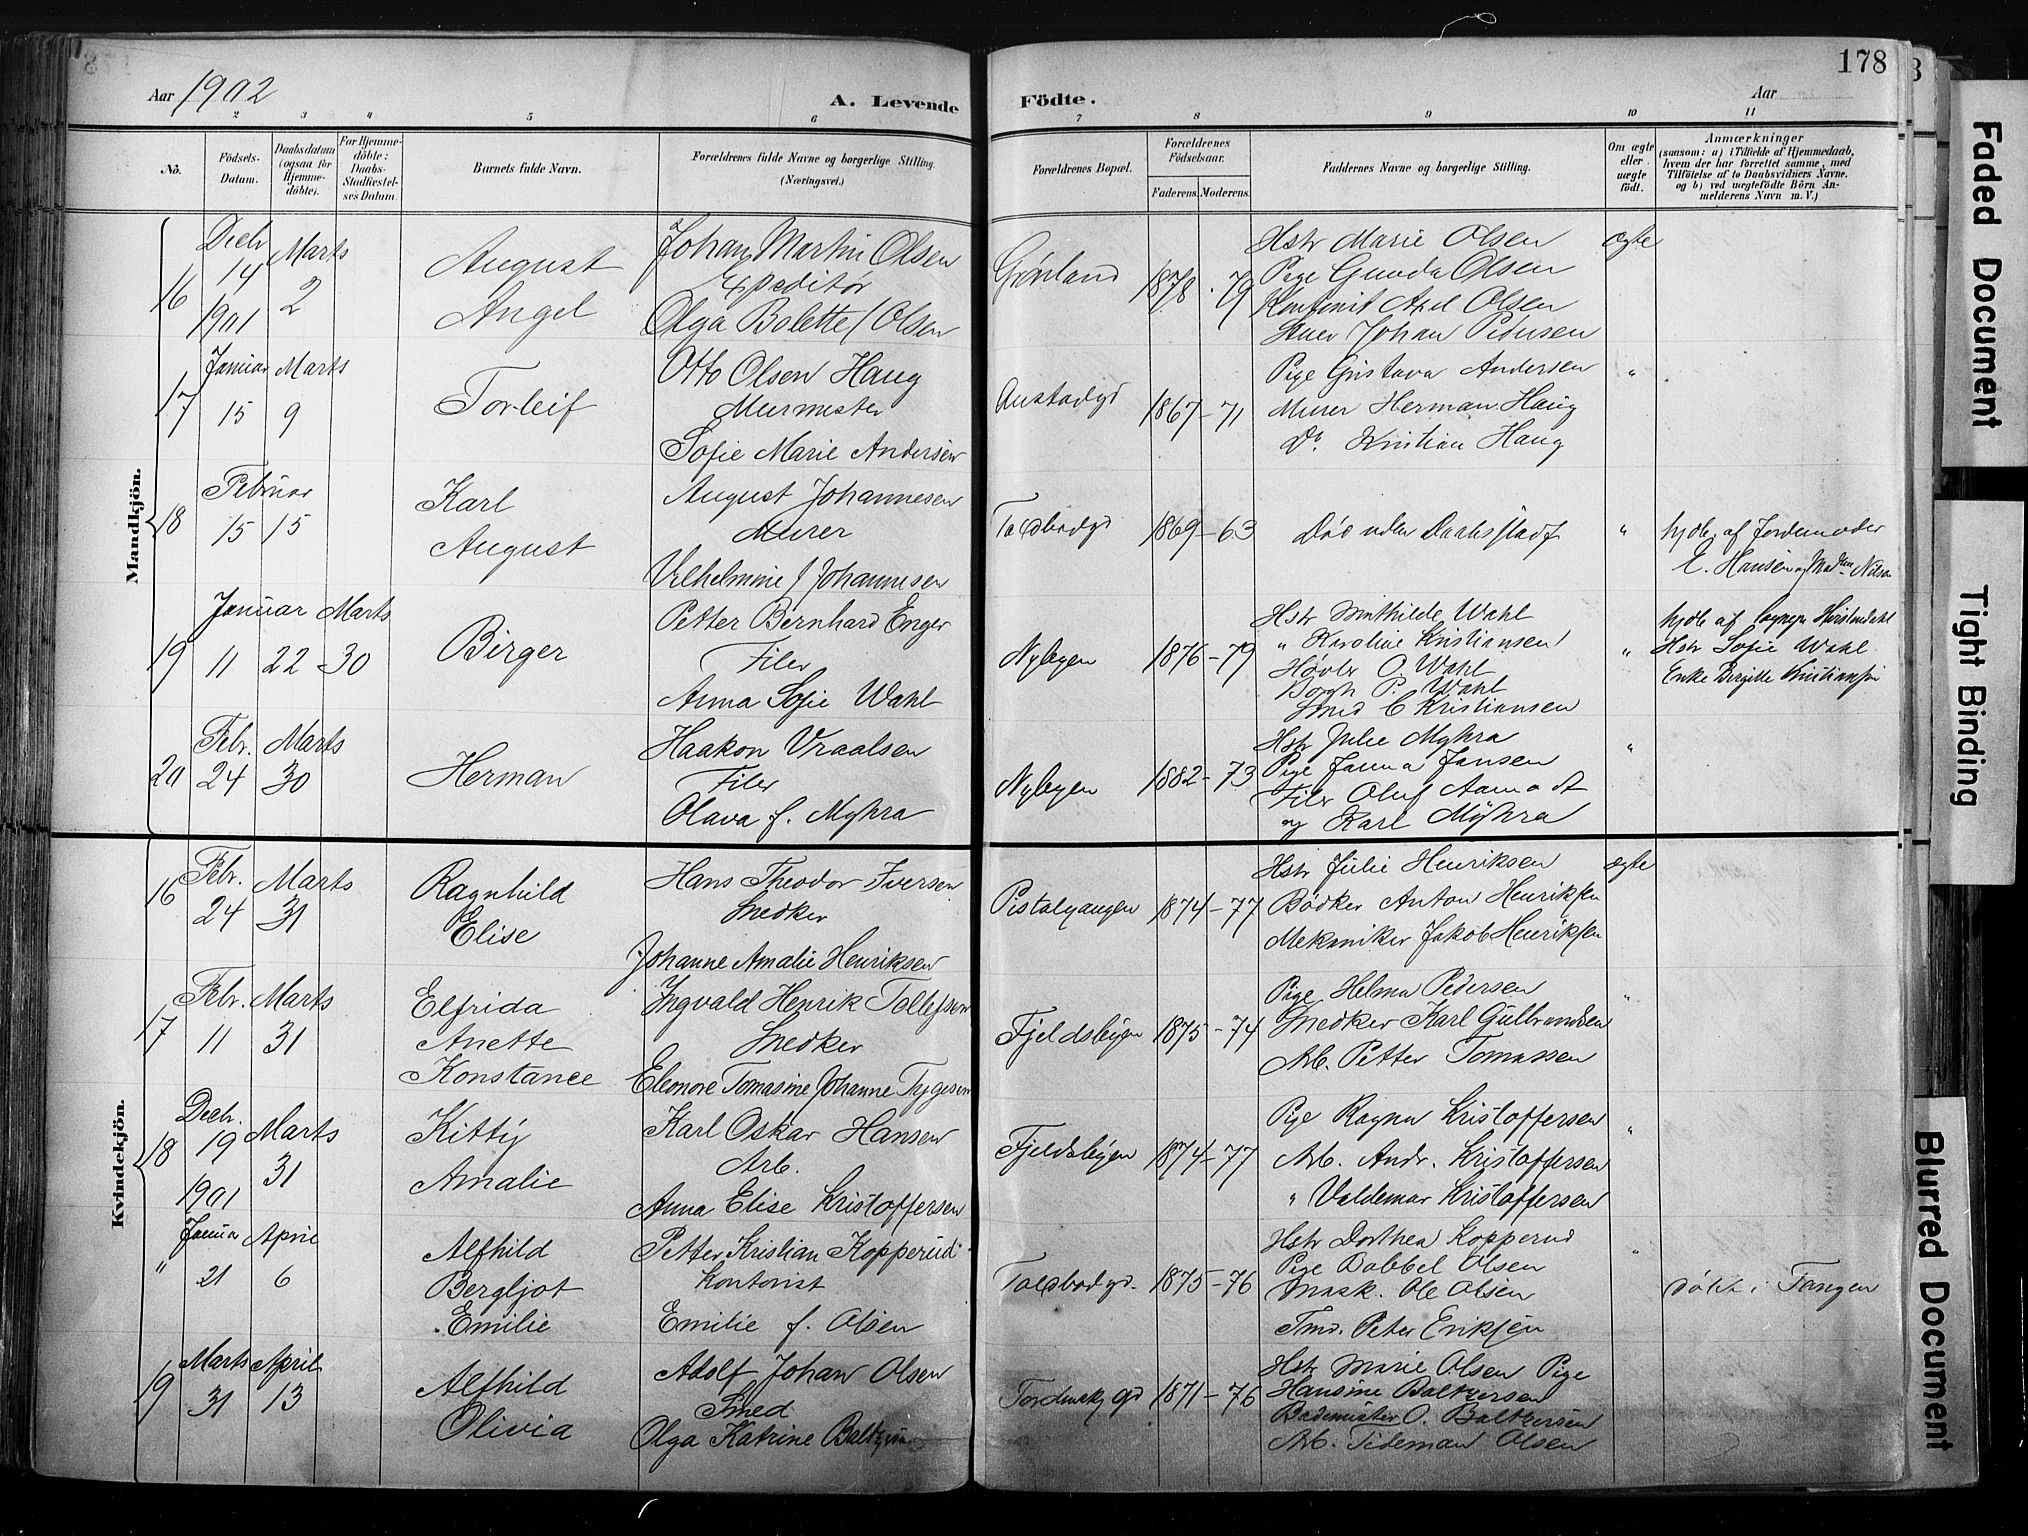 178
Aar 1902
A. Levende Födte.
Aar
2 3 4 5 6 7 8 9 10 11
No.
Födsels-Datum.
Daabsdatum (ogsaa for Hjemme-döbte).
For Hjemme-döbte: Daabs-Stadfæstel-ses Datum.
Barnets fulde Navn.
Forældrenes fulde Navne og borgerlige Stilling. (Næringsvei.)
Forældrenes Bopæl.
Forældrenes Födselsaar.
Faderens. Moderens.
Faddernes Navne og borgerlige Stilling.
Om ægte eller uægte født.
Anmærkninger
(saasom: a) i Tilfælde af Hjemmedaab, hvem der har forrettet samme, med Tilföielse af to Daabsvidners Navne. og b) ved uægtefödte Börn An-melderens Navn m. V.)
Mandkjön.
16 Decbr 14 1901 Marts 2
August Angel
Johan Martin Olsen
Expeditør
Olga Bolette f Olsen
Grønland 1878 - 79
Hstr Marie Olsen
Pige Gunda Olsen
Axel Olsen
Johan Pedersen
ægte
17 Januar 15 Marts 9
Torleif
Otto Olsen Haug
Murmester
Sofie Marie Andersen
1867 - 71
Pige Gustava Andersen
Murer Herman Haug
Do Kristian Haug
"
18 Februar 15 15
Karl August
August Johannesen
Murer
Vilhelmine f Johannesen
Toldbodgd 1869 - 63
Død uden Daabsstadf
"
hjdb. af Jordemoder
E. Hansen og Nilsen
19 Januar 11 Marts 22 - 30
Birger
Petter Bernhard Enger
Filer
Anna Sofie Wahl
Nybyen 1876 - 79
Hstr Mathilde Wahl
" Karoline Kristiansen
Høvler O Wahl
P. Wahl
Smed C Kristiansen
"
hjdb af
Hstr Sofie Wahl
Enke Birgitte Kristiansen
20 Febr. 24 Marts 30
Herman
Haakon Vraalsen
Filer
Olava f. Myhra
Nybyen 1882 - 73
Hstr Julie Myhra
Pige Janna Jansen
Filer Oluf Aamodt
og Karl Myhra
"
Kvindekjön.
16 Febr. 24 Marts 31
Ragnhild Elise
Hans Theodor Iversen
Snedker
Johanne Amalie Henriksen
Pistolgangen 1874 - 77
Hstr Julie Henriksen
Bødker Anton Henriksen
Mekaniker Jakob Henriksen
ægte
17 Febr. 11 Marts 31
Elfrida Anette Konstance
Ingvald Henrik Tollefsen
Snedker
Eleonore Tomasine Johanne Tygesen
Fjeldsbyen 1875 - 74
Pige Helma Pedersen
Snedker Karl Gulbrandsen
Arb. Petter Tomassen
"
18 Decbr. 19 1901 Marts 31
Kitty Amalie
Karl Oskar Hansen
Arb.
Anna Elise Kristoffersen
Fjeldsbyen 1874 - 77
Pige Ragna Kristoffersen
Arb. Andr. Kristoffersen
" Valdemar Kristoffersen
"
" Januar 21 April 6
Alfhild Bergljot Emilie
Petter Kristian Kopperud
Kontorist
Emilie f. Olsen
Toldbodgd. 1875 - 76
Hstr Dorthea Kopperud
Pige Bobbel Olsen
Mask. Ole Olsen
Tmd. Peter Eriksen
"
døbt i Tangen
19 Marts 31 April 13
Alfhild Olivia
Adolf Johan Olsen
Smed
Olga Katrine Baltzersen
Tordenskj gd 1871 - 76
Hstr Marie Olsen Pige
Hansine Baltzersen
Bademester O. Baltzersen
Arb. Tideman Olsen
Faded Document
Tight Binding
Blurred Document